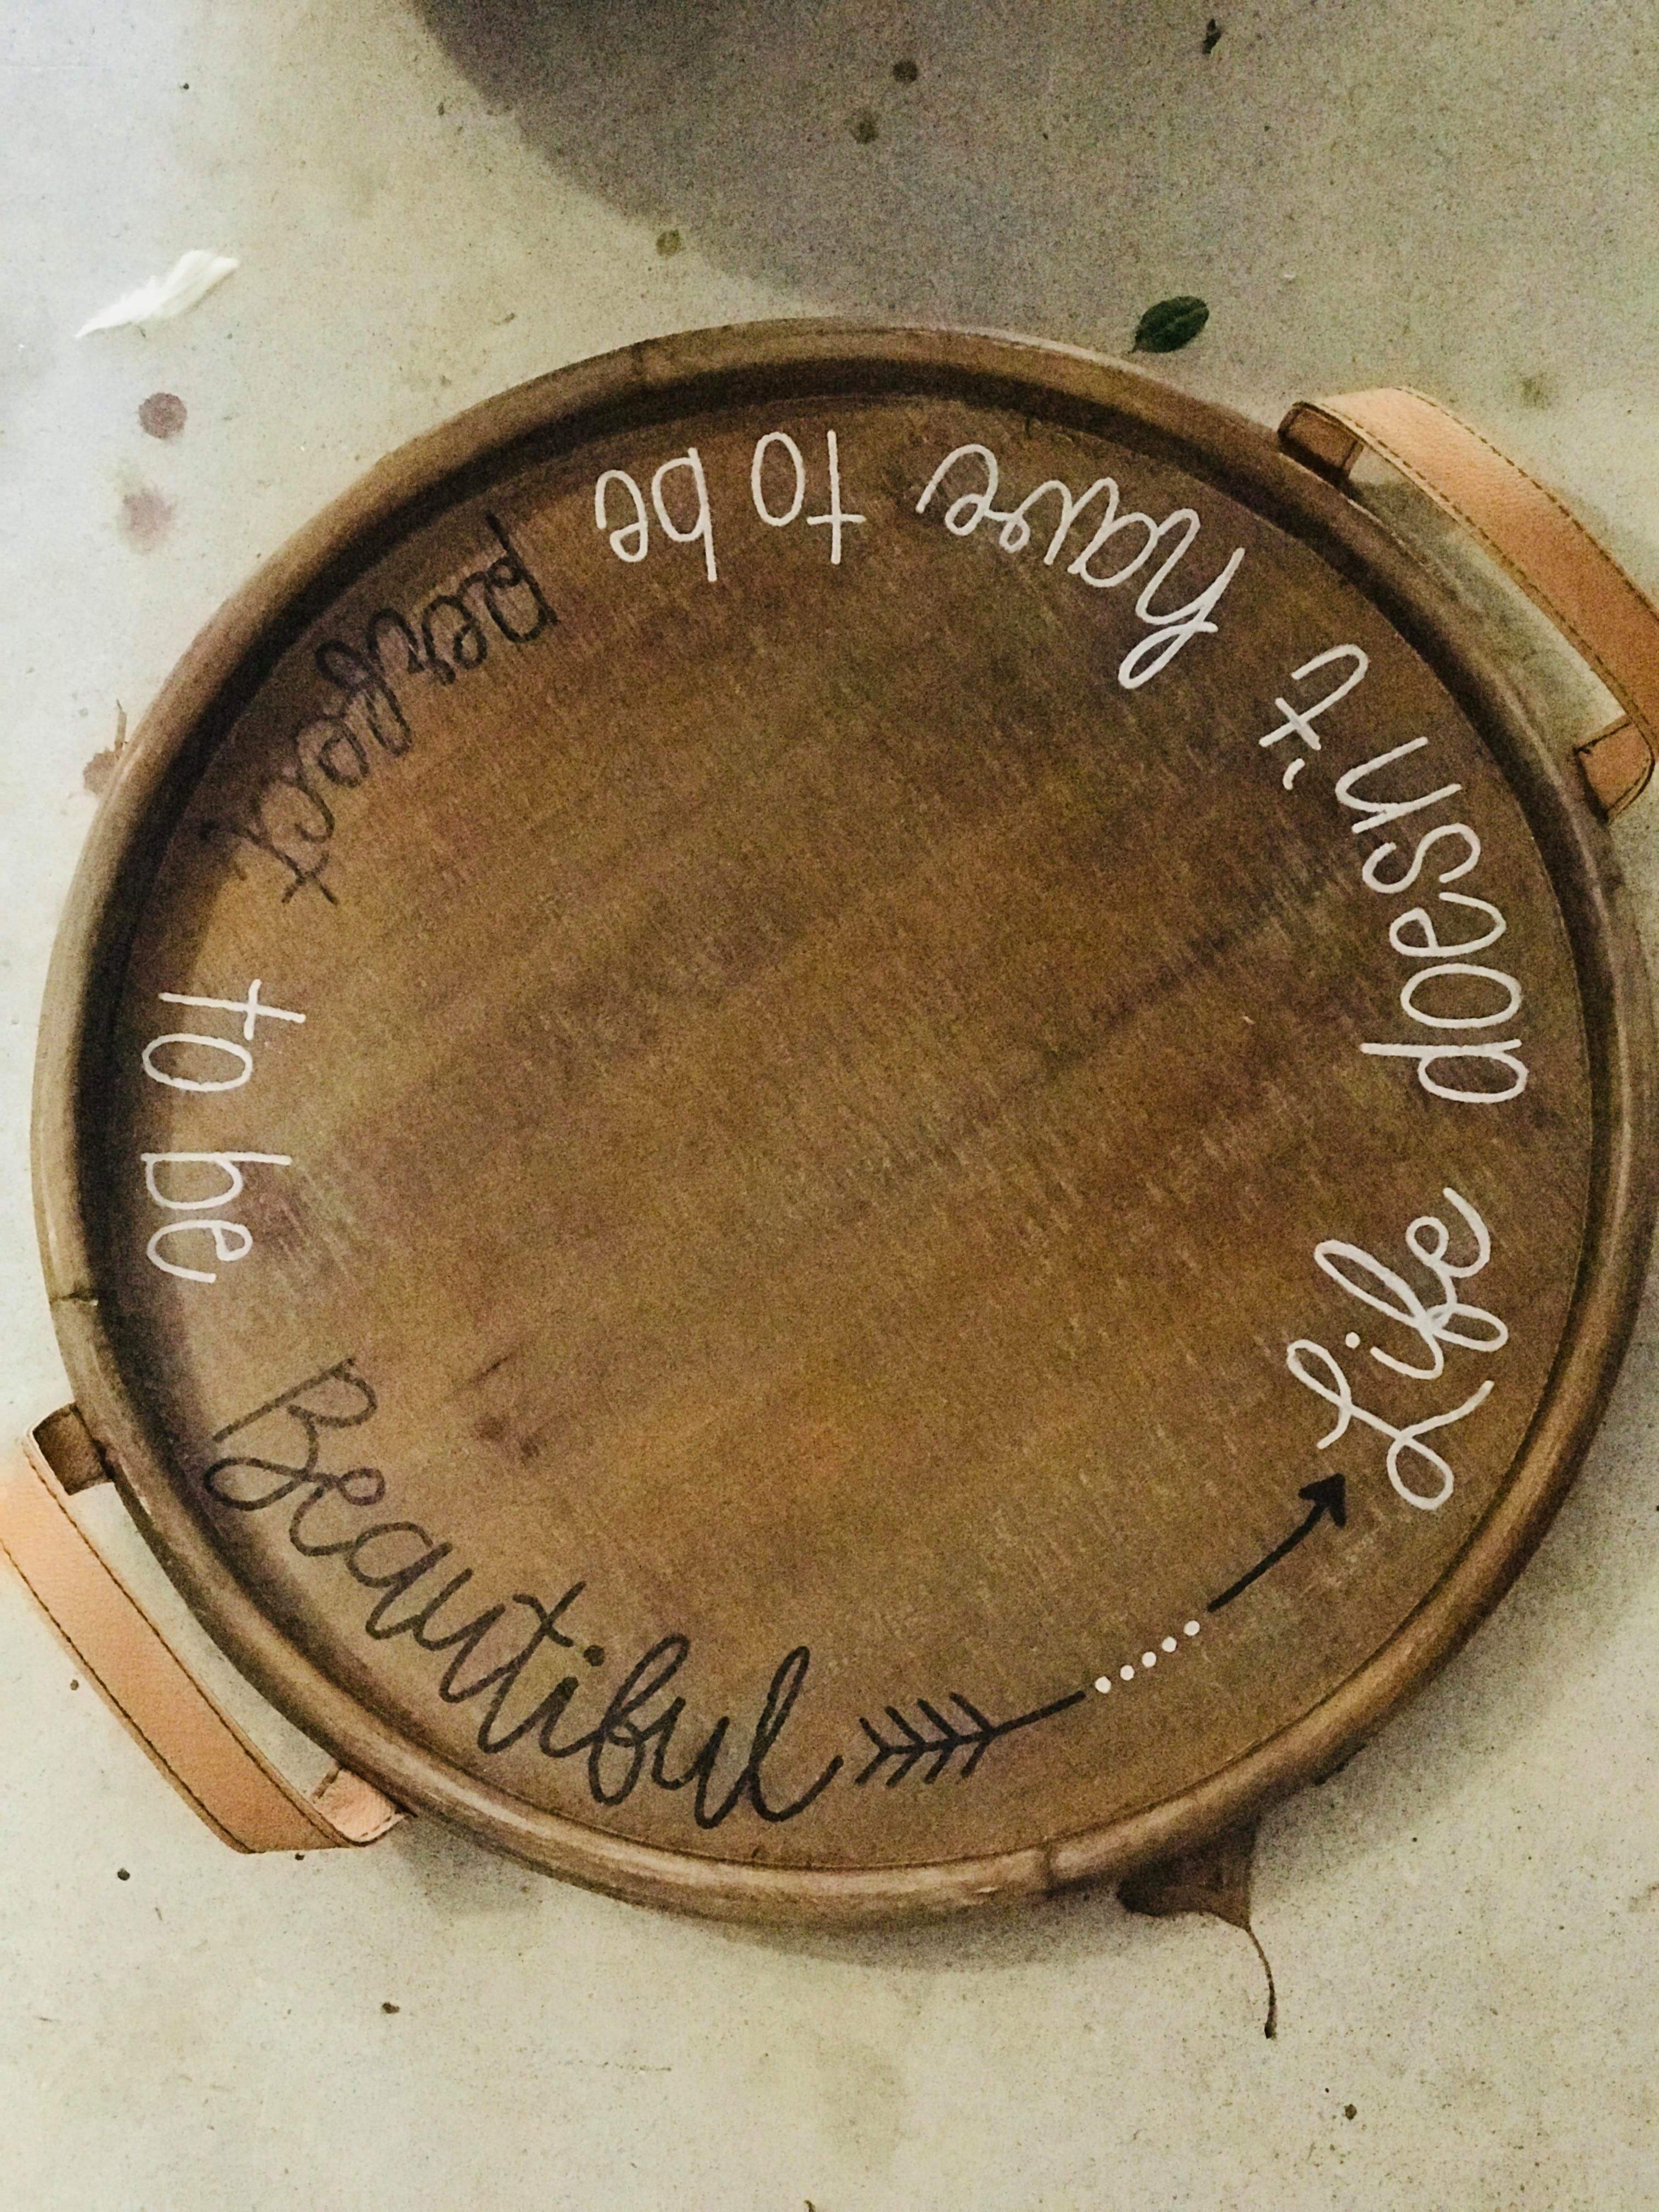 Life doesn't have to be perfect to be Beautiful